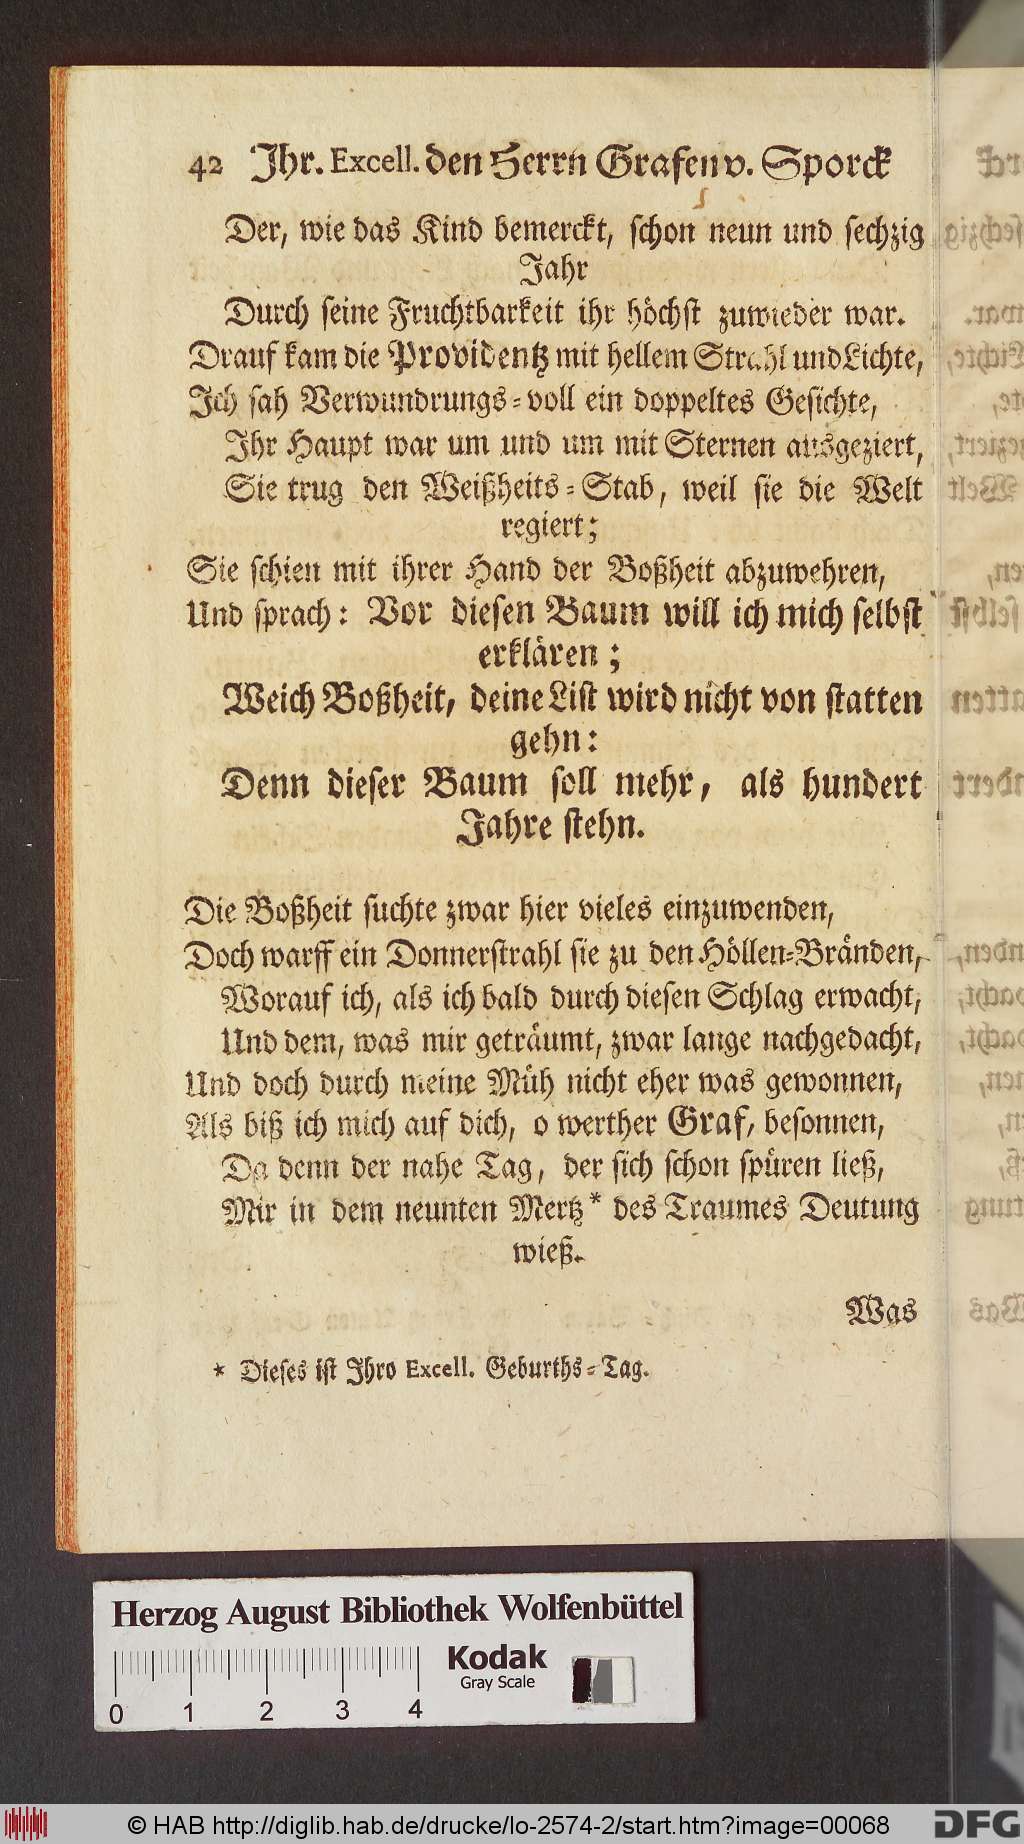 42 Ihr. Excell. den Herrn Grafen v. Sporck
Der, wie das Kind bemerckt, schon neun und sechzig
Jahr
Durch seine Fruchtbarkeit ihr höchst zuwieder war.
Drauf kam die Providentz mit hellem Strahl und Lichte,
Ich sah Verwundrungs-voll ein doppeltes Gesichte,
Ihr Haupt war um und um mit Sternen ausgeziert,
Sie trug den Weißheits-Stab, weil sie die Welt
regiert;
Sie schien mit ihrer Hand der Boßheit abzuwehren,
Und sprach: Vor diesen Baum will ich mich selbst
erklären;
Weich Boßheit, deine List wird nicht von statten
gehn:
Denn dieser Baum soll mehr, als hundert
Jahre stehn.
Die Boßheit suchte zwar hier vieles einzuwenden,
Doch warff ein Donnerstrahl sie zu den Höllen-Bränden,
Worauf ich, als ich bald durch diesen Schlag erwacht,
Und dem, was mir geträumt, zwar lange nachgedacht,
Und doch durch meine Müh nicht eher was gewonnen,
Als biß ich mich auf dich, o werther Graf, besonnen,
Da denn der nahe Tag, der sich schon spüren ließ,
Mir in dem neunten Mertz * des Traumes Deutung
wieß.
Was
* Dieses ist Ihro Excell. Geburths-Tag.
Herzog August Bibliothek Wolfenbüttel
Kodak
Gray Scale
0 1 2 3 4
© HAB http://diglib.hab.de/drucke/lo-2574-2/start.htm?image=00068
DFG